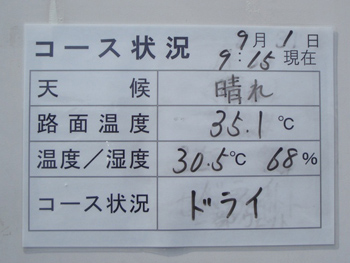 コース状況 9月1日
9:15現在
天候 晴れ
路面温度 35.1℃
温度／湿度 30.5℃ 68%
コース状況 ドライ